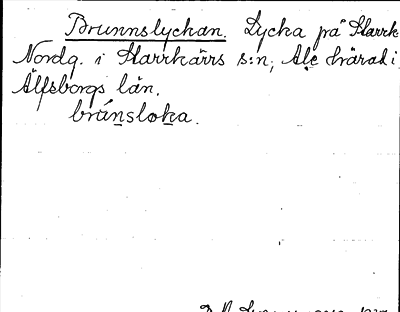 Brunnslyckan. Lycka på Starrk
Nordg. i Starrkärrs s:n, Ale härad i
Älfsborgs län.
brúnsloka.